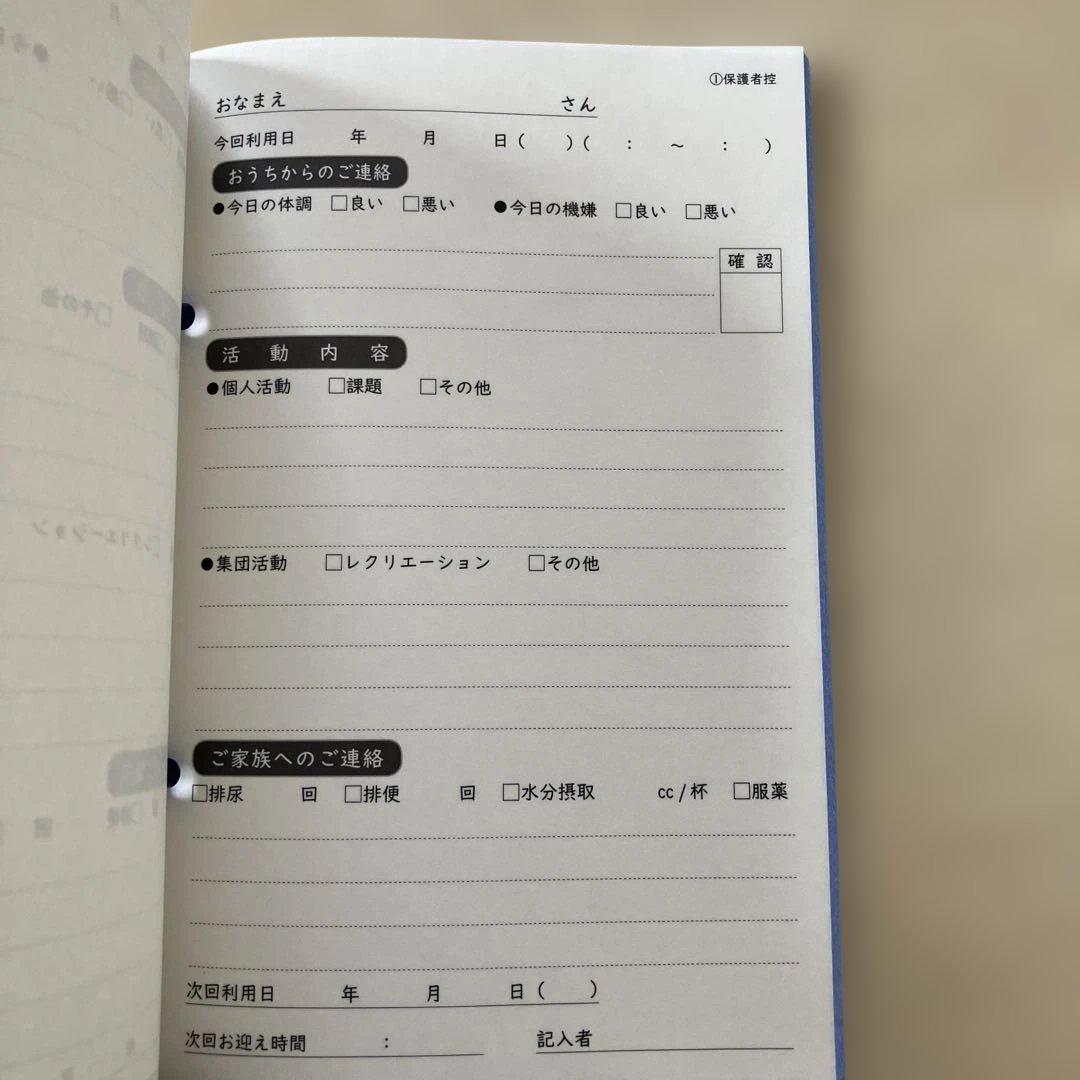 ①保護者控
おなまえ さん
今回利用日 年 月 日( )( : ~ : )
おうちからのご連絡
●今日の体調 □良い □悪い ●今日の機嫌 □良い □悪い
確認
活動内容
●個人活動 □課題 □その他
●集団活動 □レクリエーション □その他
ご家族へのご連絡
□排尿 回 □排便 回 □水分摂取 cc/杯 □服薬
次回利用日 年 月 日( )
次回お迎え時間 : 記入者